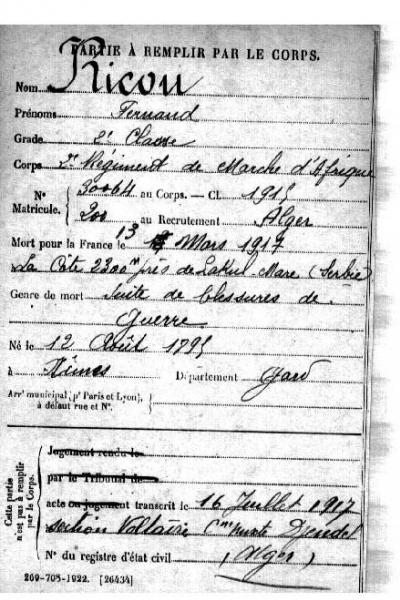 PARTIE À REMPLIR PAR LE CORPS.
Nom Ricou
Prénoms Fernand
Grade 2e Classe
Corps 2e Régiment de Marche d'Afrique
N° 30064 au Corps. — Cl. 1915
Matricule. 200 au Recrutement Alger
Mort pour la France le 13 Mars 1917
La Cote 2300m près de (Serbie)
Genre de mort Suite de blessures de
Guerre
Né le 12 Août 1795
à Nîmes Département Gard
Arrt municipal (pr Paris et Lyon), à défaut rue et N°.
Cette partie n'est pas à remplir par le Corps.
Jugement rendu le
par le Tribunal de
acte ou jugement transcrit le 16 Juillet 1917
section Voltaire Cne mixte Djendel
N° du registre d'état civil (Alger)
269-708-1922. [26434]